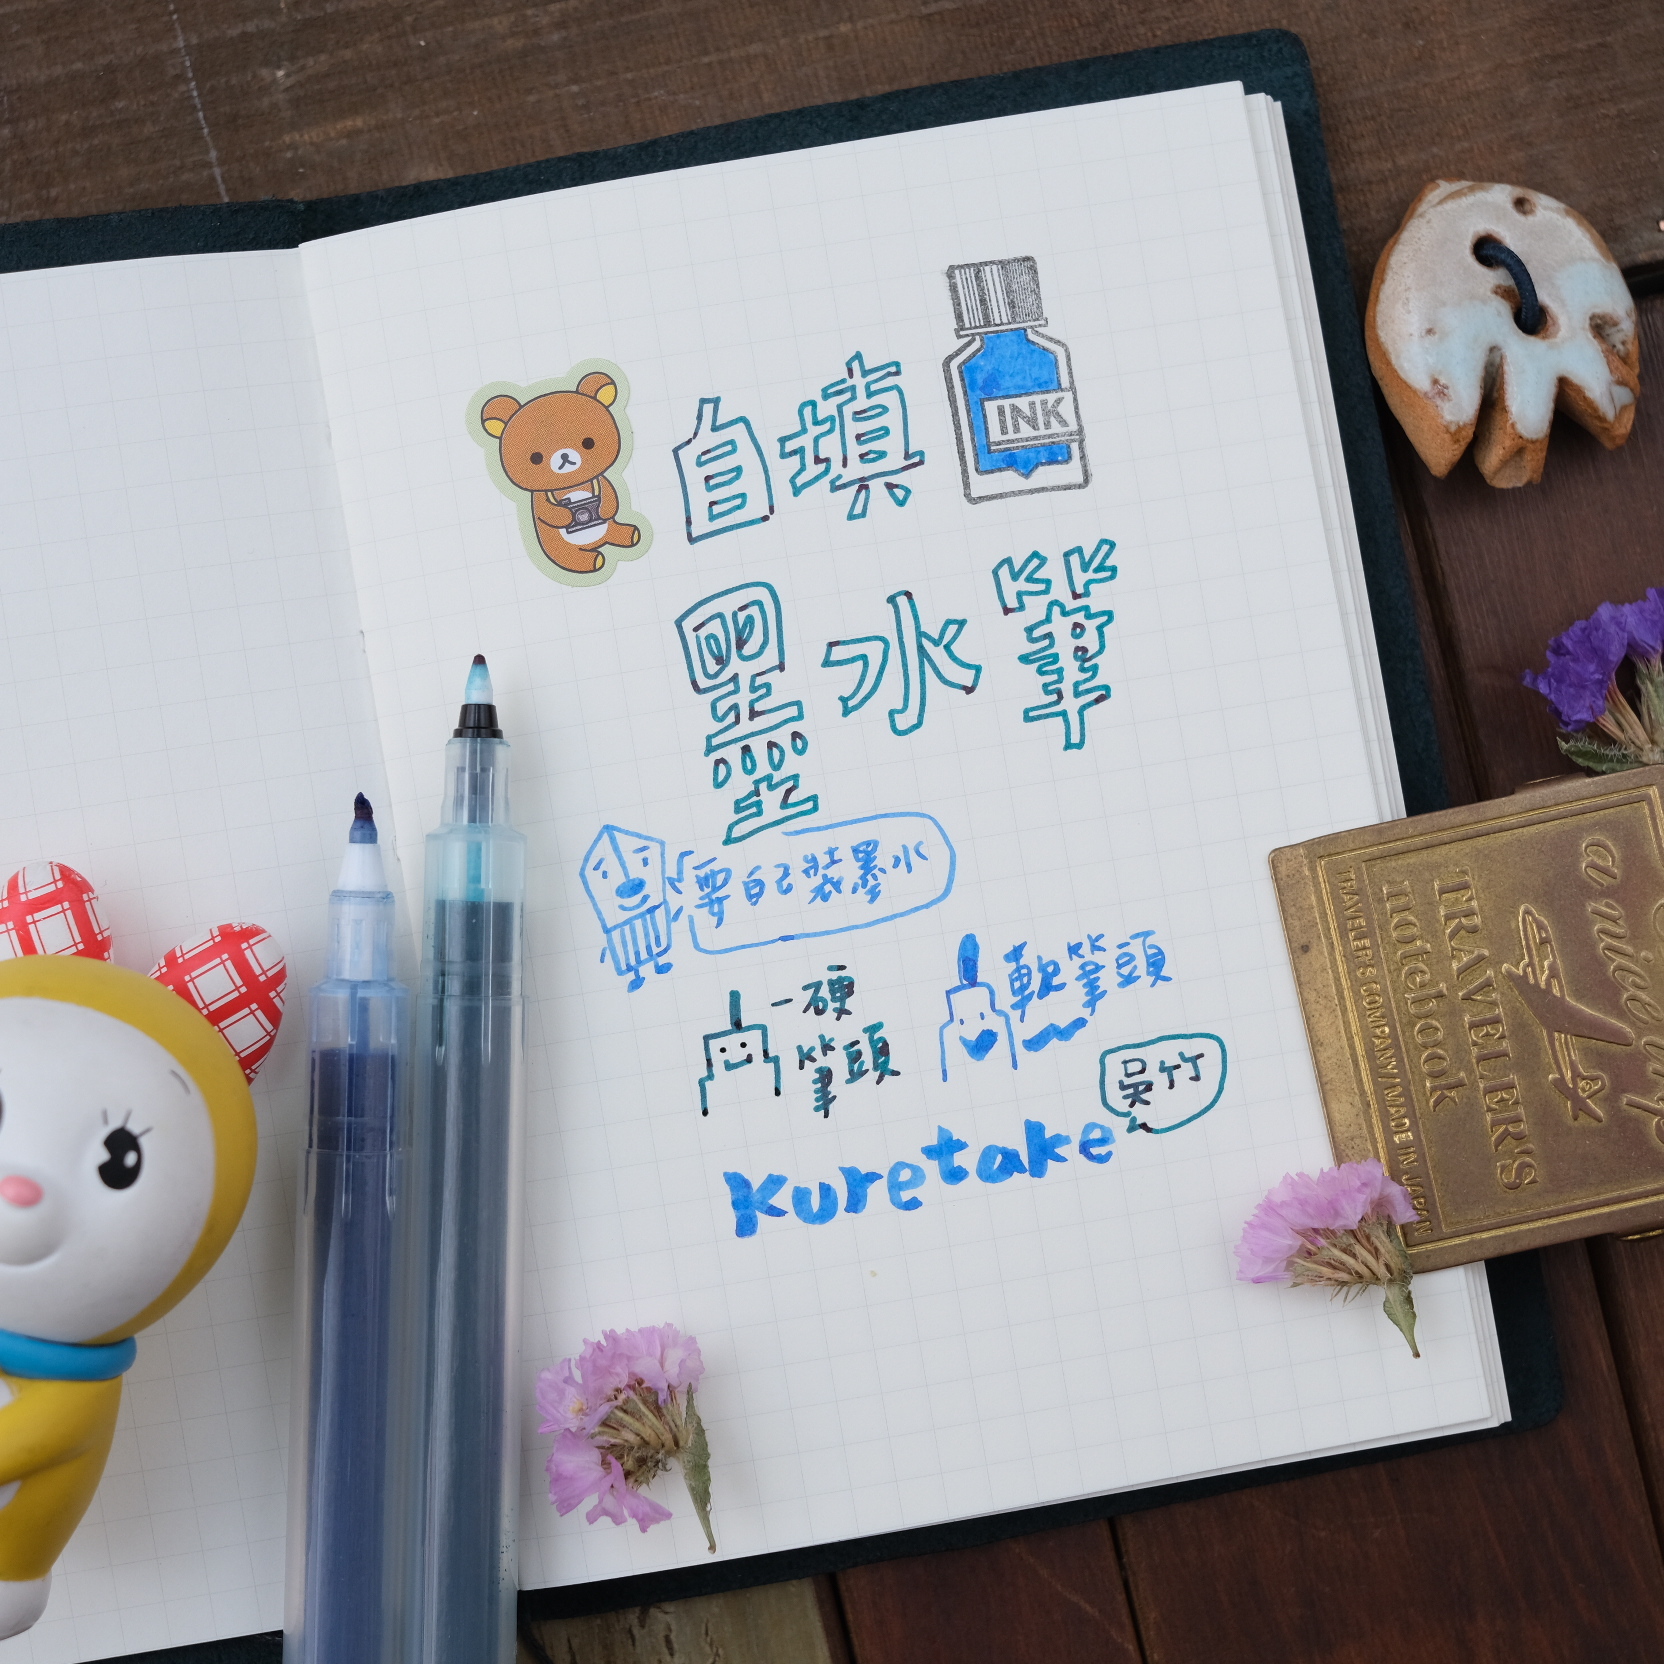 自填
INK
墨水筆
要自己裝墨水
硬
筆頭
軟筆頭
吳竹
Kuretake
TRAVELER'S
notebook
TRAVELER'S COMPANY/MADE IN JAPAN
a nice trip